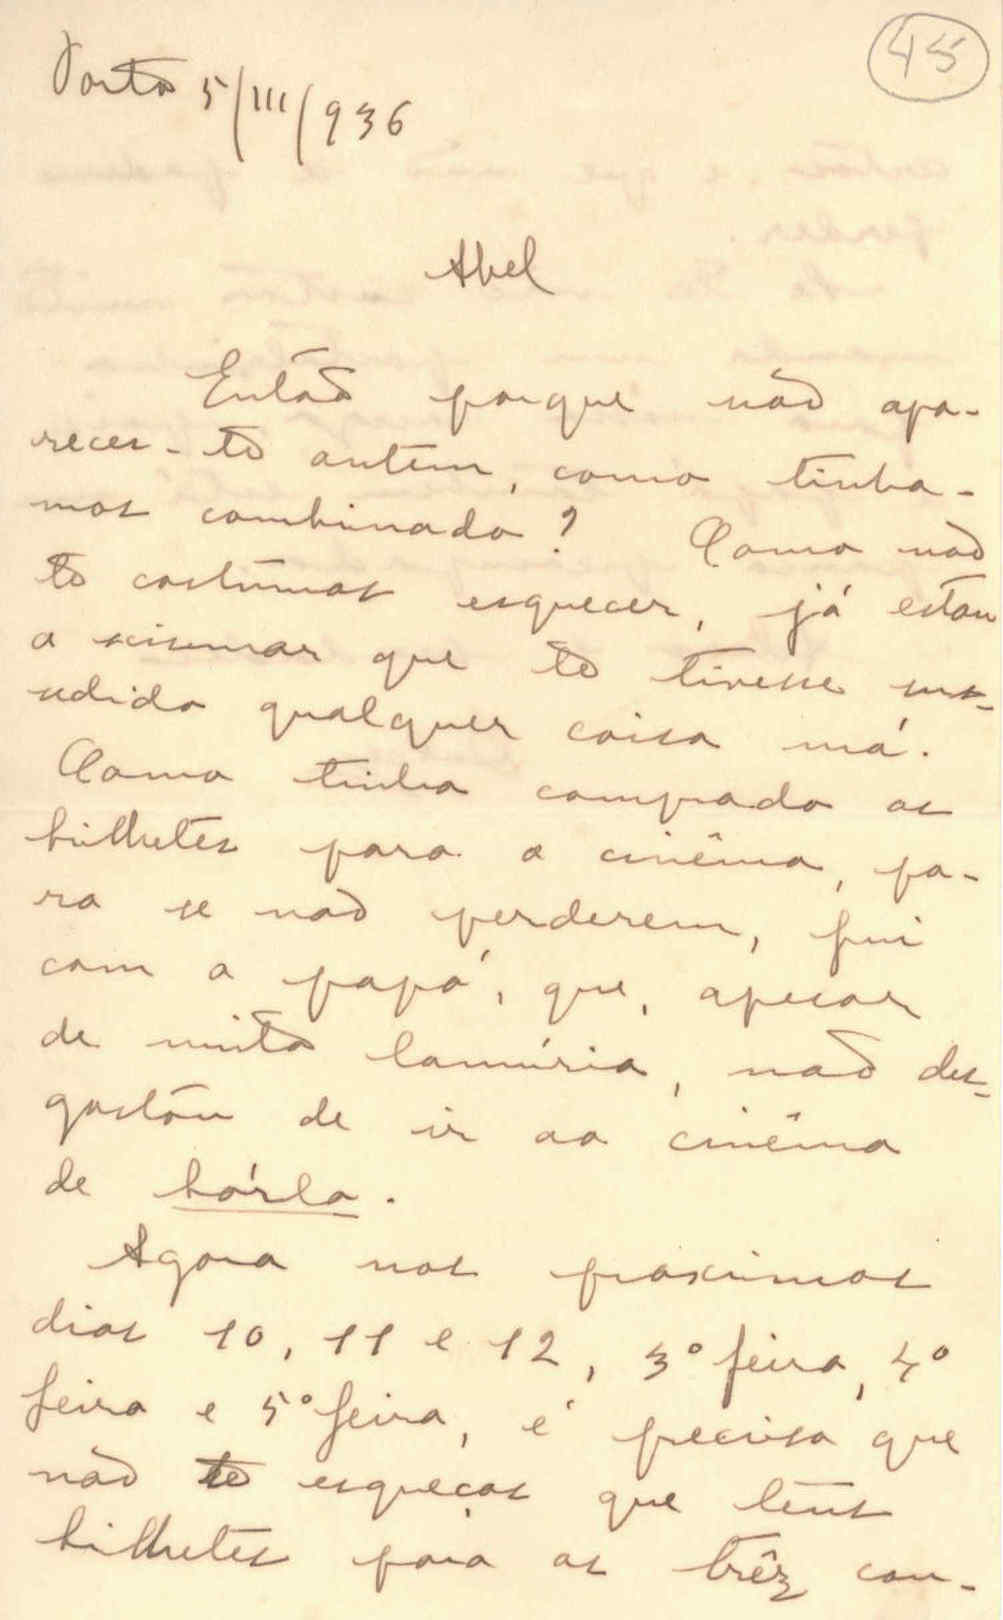 45
Porto 5/III/936
Abel
Então porque não apa-
receste ontem, como tinha-
mos combinado? Como não
te costumas esquecer, já estou
a scismar que te tivesse suc-
cedido qualquer coisa má.
Como tinha comprado os
bilhetes para o cinêma, pa-
ra se não perderem, fui
com o papá, que, apesar
de muita lamúria, não des-
gostou de ir ao cinêma
de bórla.
Agora nos proximos
dias 10, 11 e 12, 3º feira, 4º
feira e 5º feira, é preciso que
não te esqueças que tens
bilhetes para os três con-